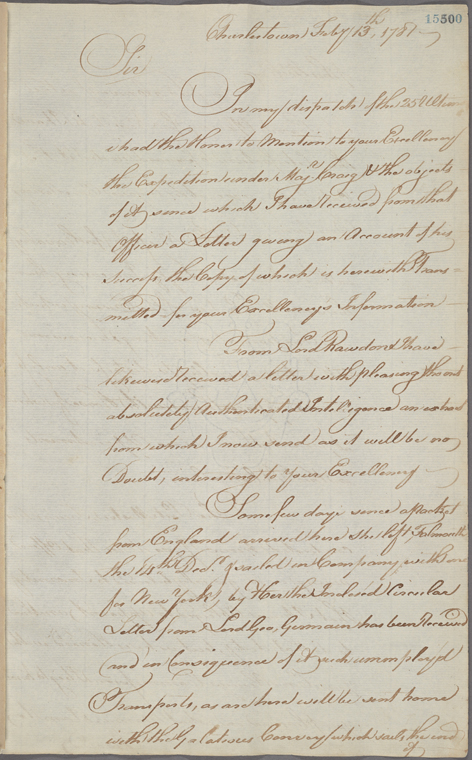 15500
Charlestown Feby 13th, 1781
Sir
In my dispatch of the 25th Ultimo
I had the Honor to Mention to your Excellency
the Expedition under Majr. Craig & the objects
of it, since which I have received from that
Officer a Letter giving an Account of his
Success, the Copy of which is herewith Trans=
mitted for your Excellency's Information
From Lord Rawdon I have
likewise received a letter with pleasing tho not
absolutely Authenticated Intelligence an extract
from which I now send as it will be no
Doubt, interesting to your Excellency
Some few days since a Packet
from England arrived here she left Falmouth
the Decr. & sailed in Company with one
for New York, by Her the Inclosed Circular
Letter from Lord Geo, Germain has been received
and in Consequence of it such unemployd
Transports, as are here will be sent home
with the Convoy which sails the end
of